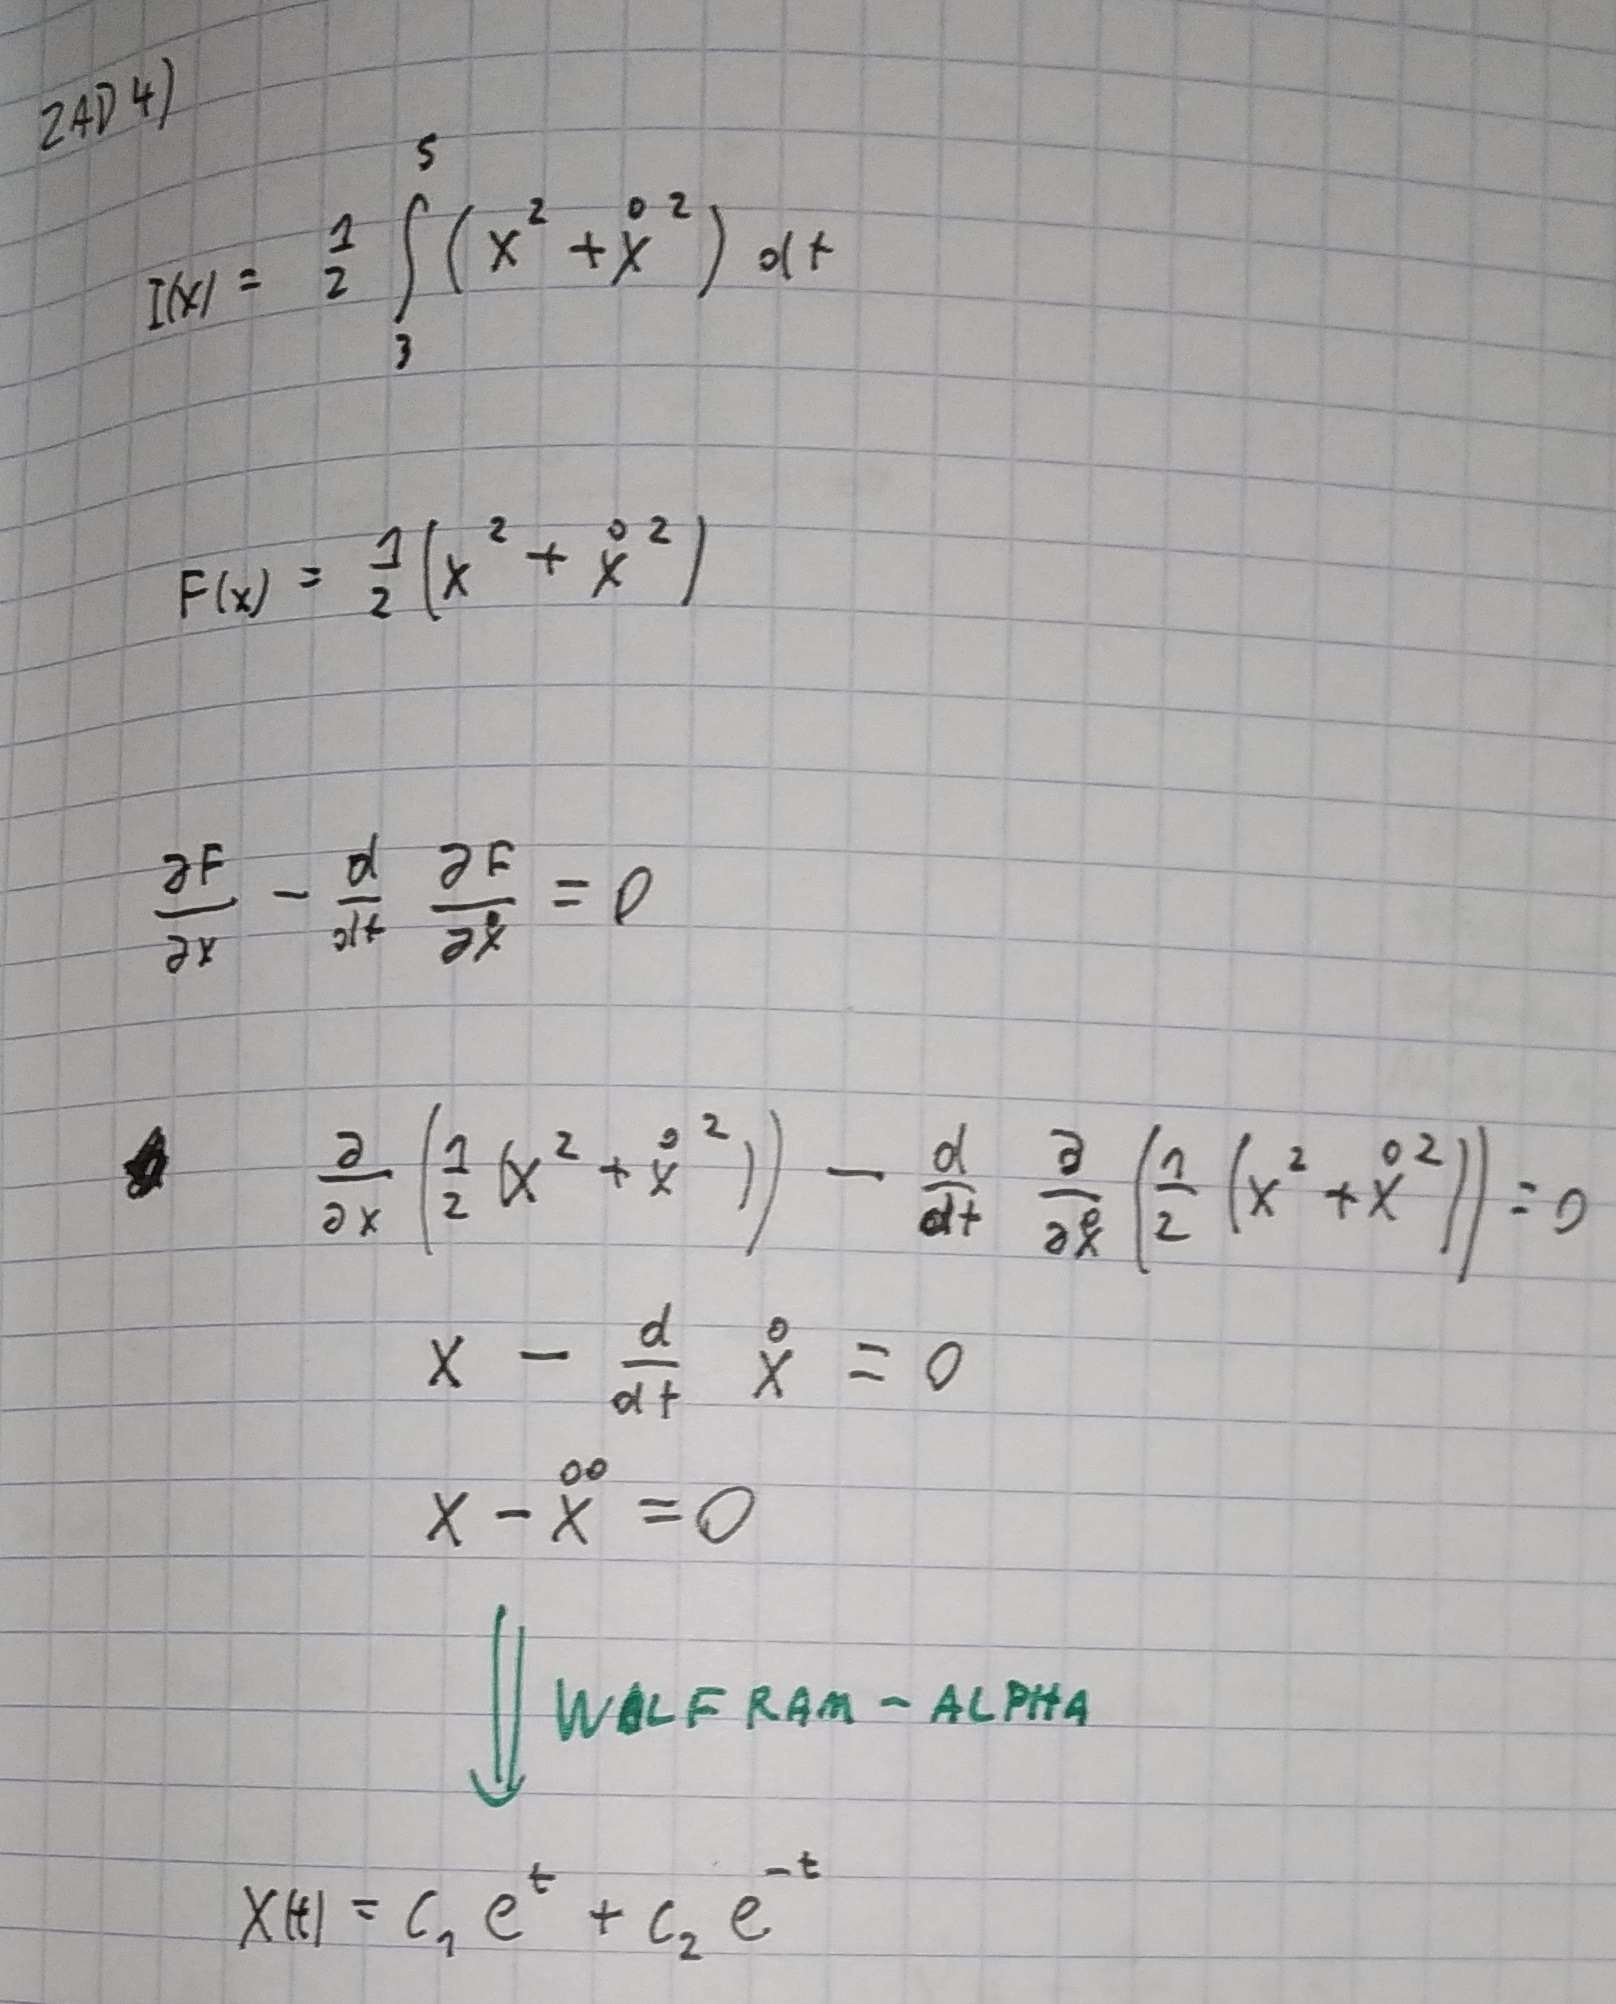 ZAD 4)
I(x) = 1/2 ∫₃⁵ (x² + ẋ²) dt
F(x) = 1/2 (x² + ẋ²)
∂F/∂x - d/dt ∂F/∂ẋ = 0
∂/∂x (1/2 (x² + ẋ²)) - d/dt ∂/∂ẋ (1/2 (x² + ẋ²)) = 0
x - d/dt ẋ = 0
x - ẍ = 0
WOLFRAM - ALPHA
X(t) = C₁ e^t + C₂ e^-t